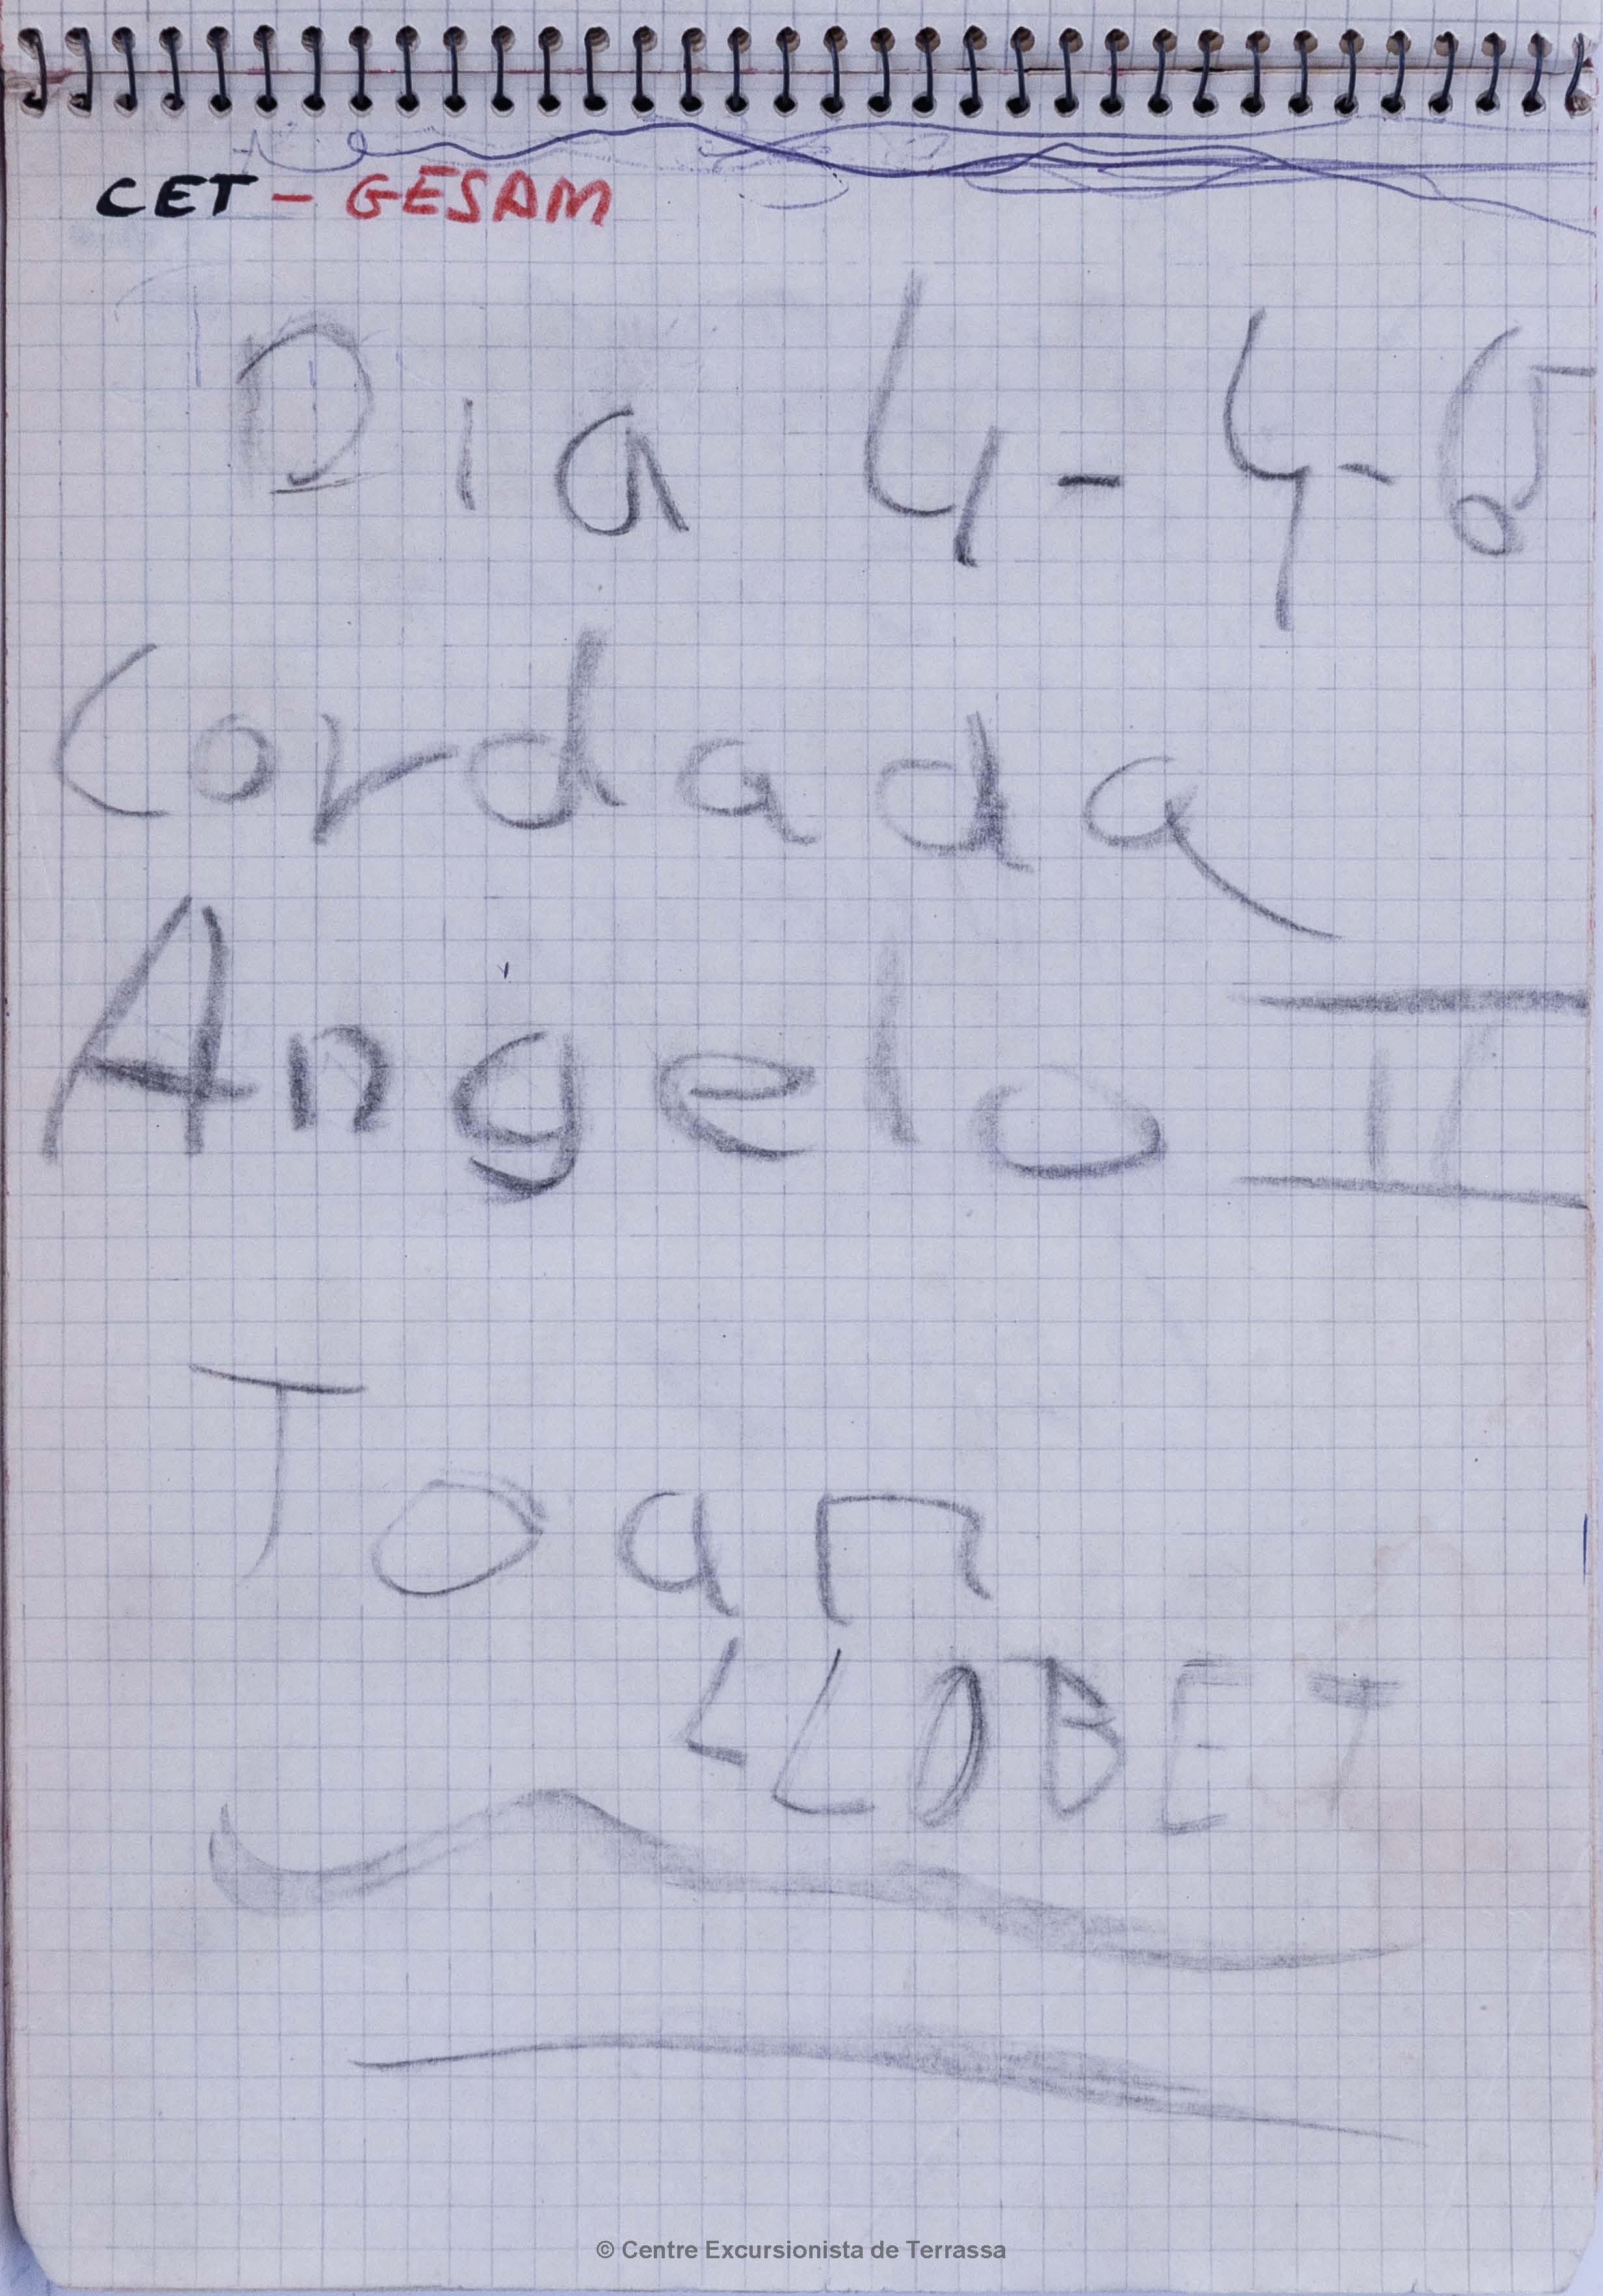 CET - GESAM
Dia 4-4-65
Cordada
Angelo II
Joan
LLOBET
© Centre Excursionista de Terrassa